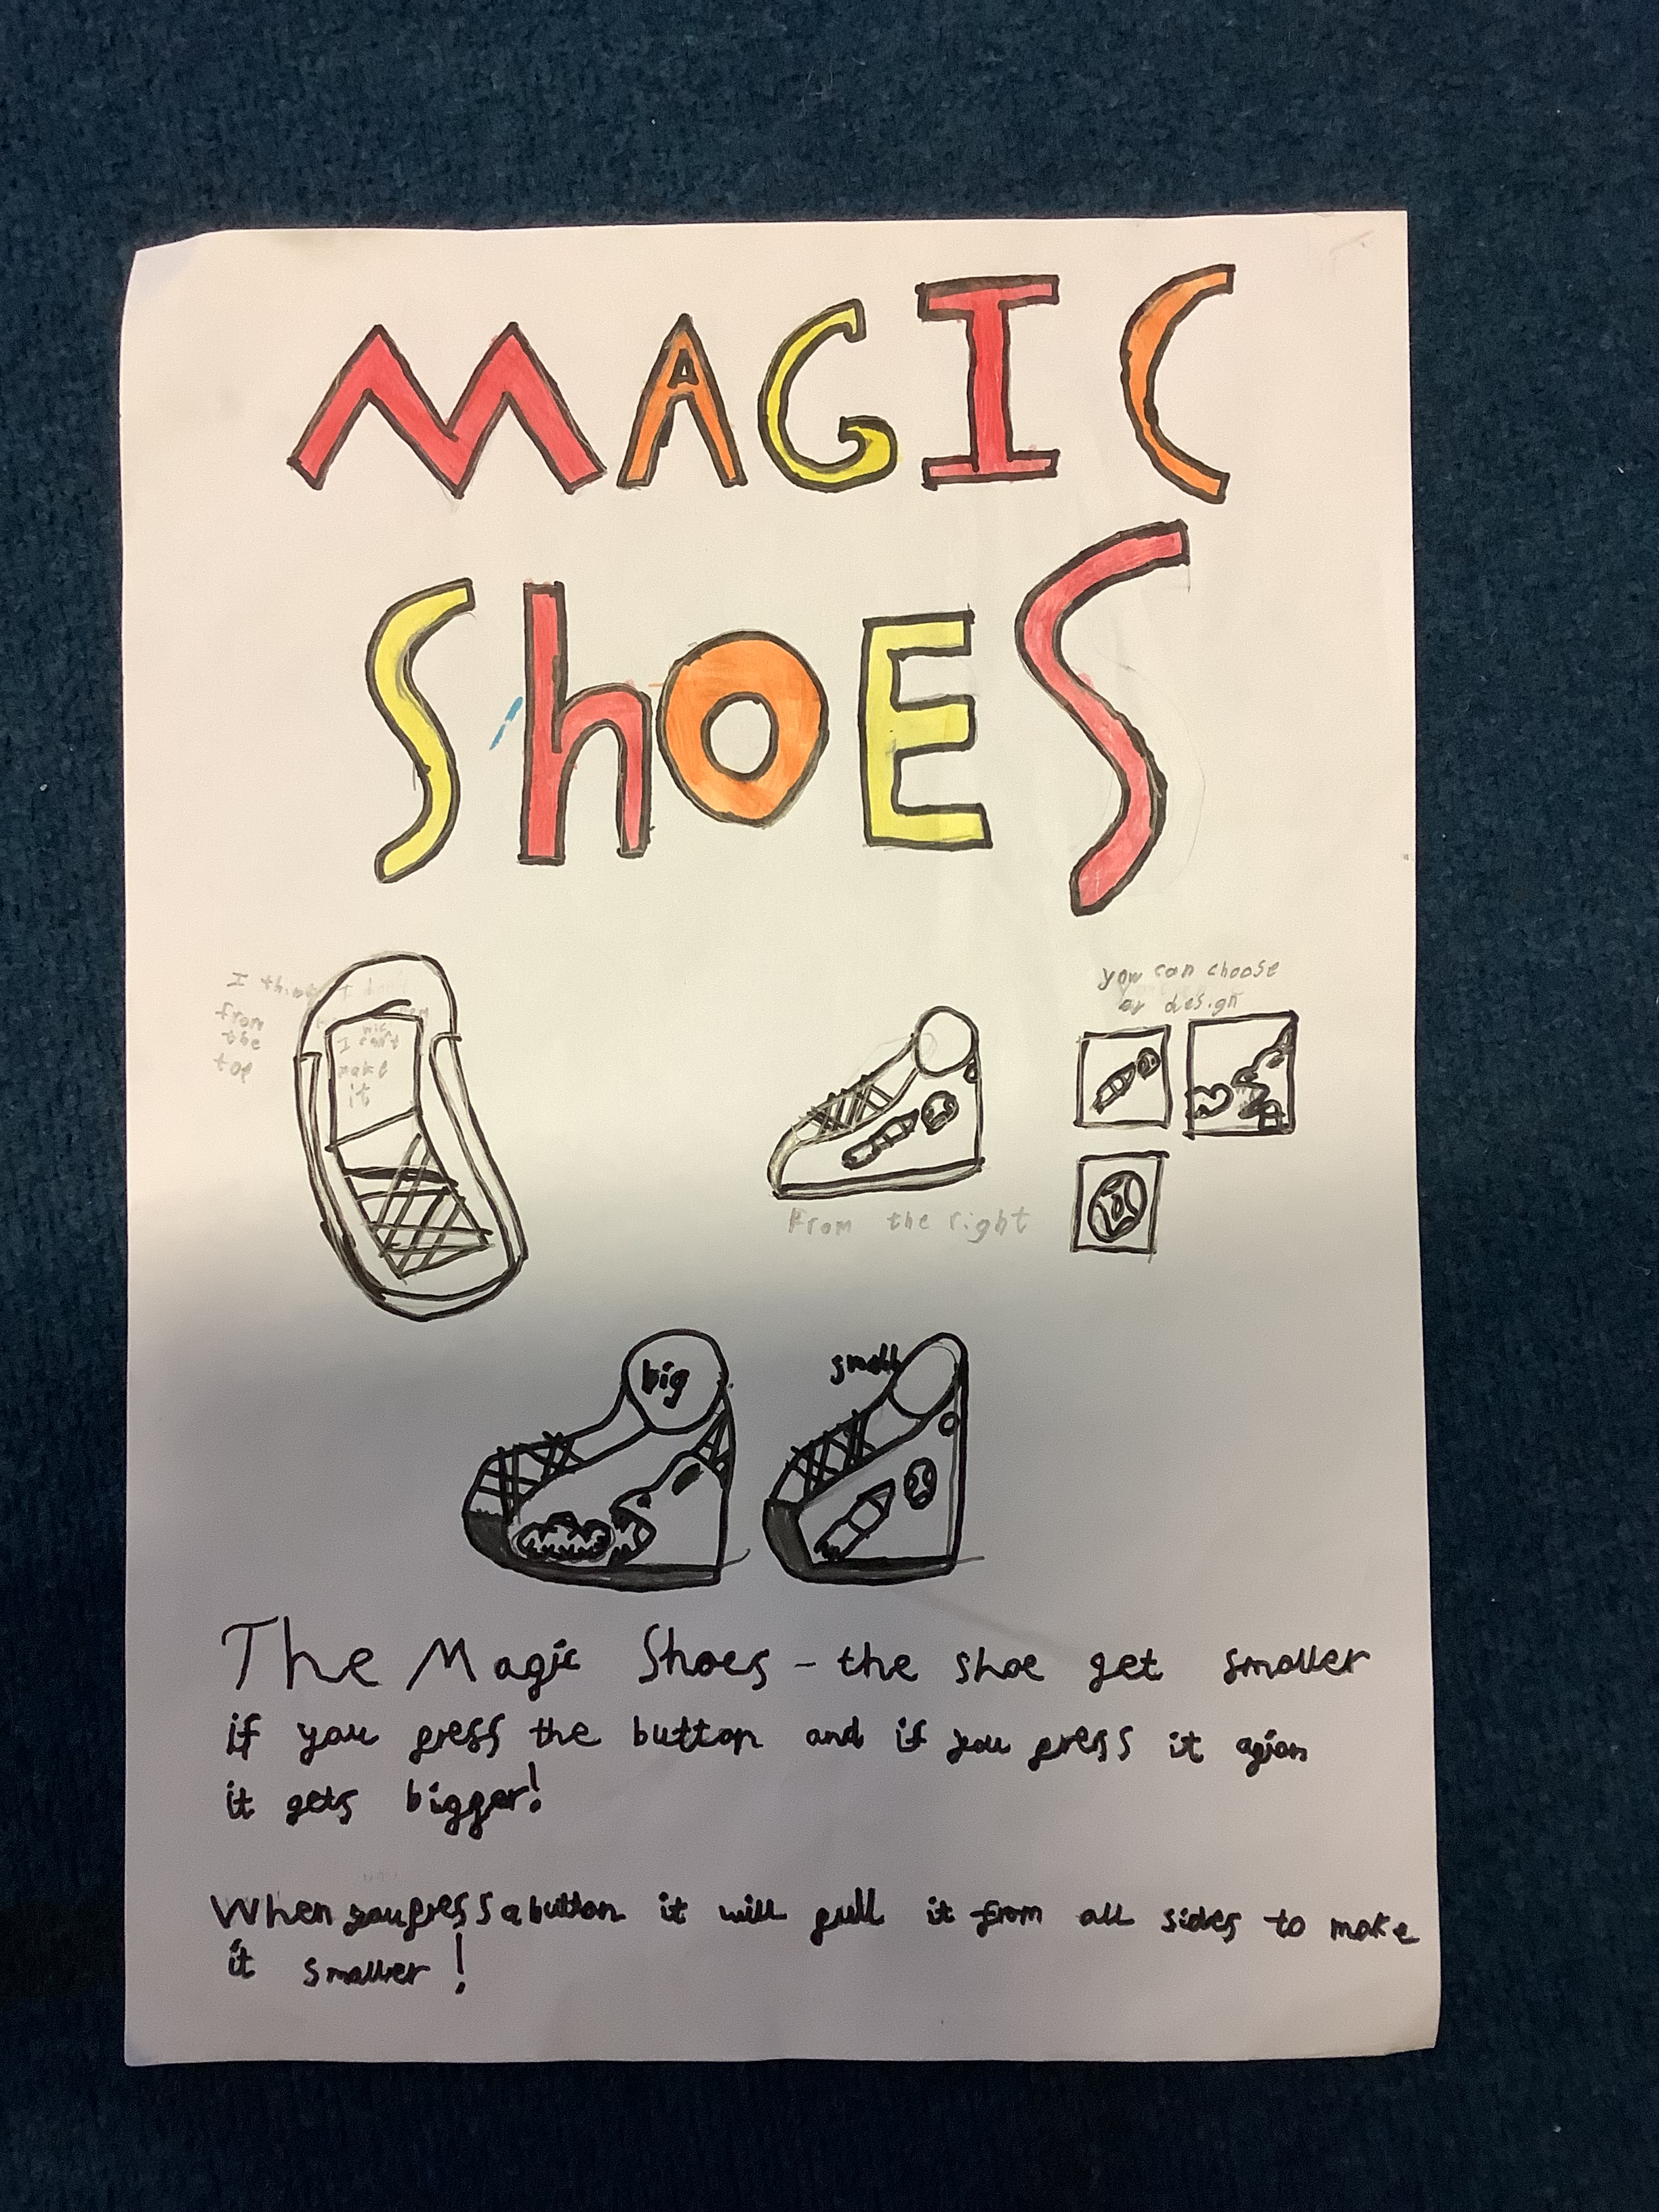 MAGIC
ShOES
from
the
top
I can't
make
it
you can choose
or design
From the right
big
small
The Magic Shoes - the shoe get smaller
if you press the button and if you press it agian
it gets bigger!
When you press a button it will pull it from all sides to make
it smaller!